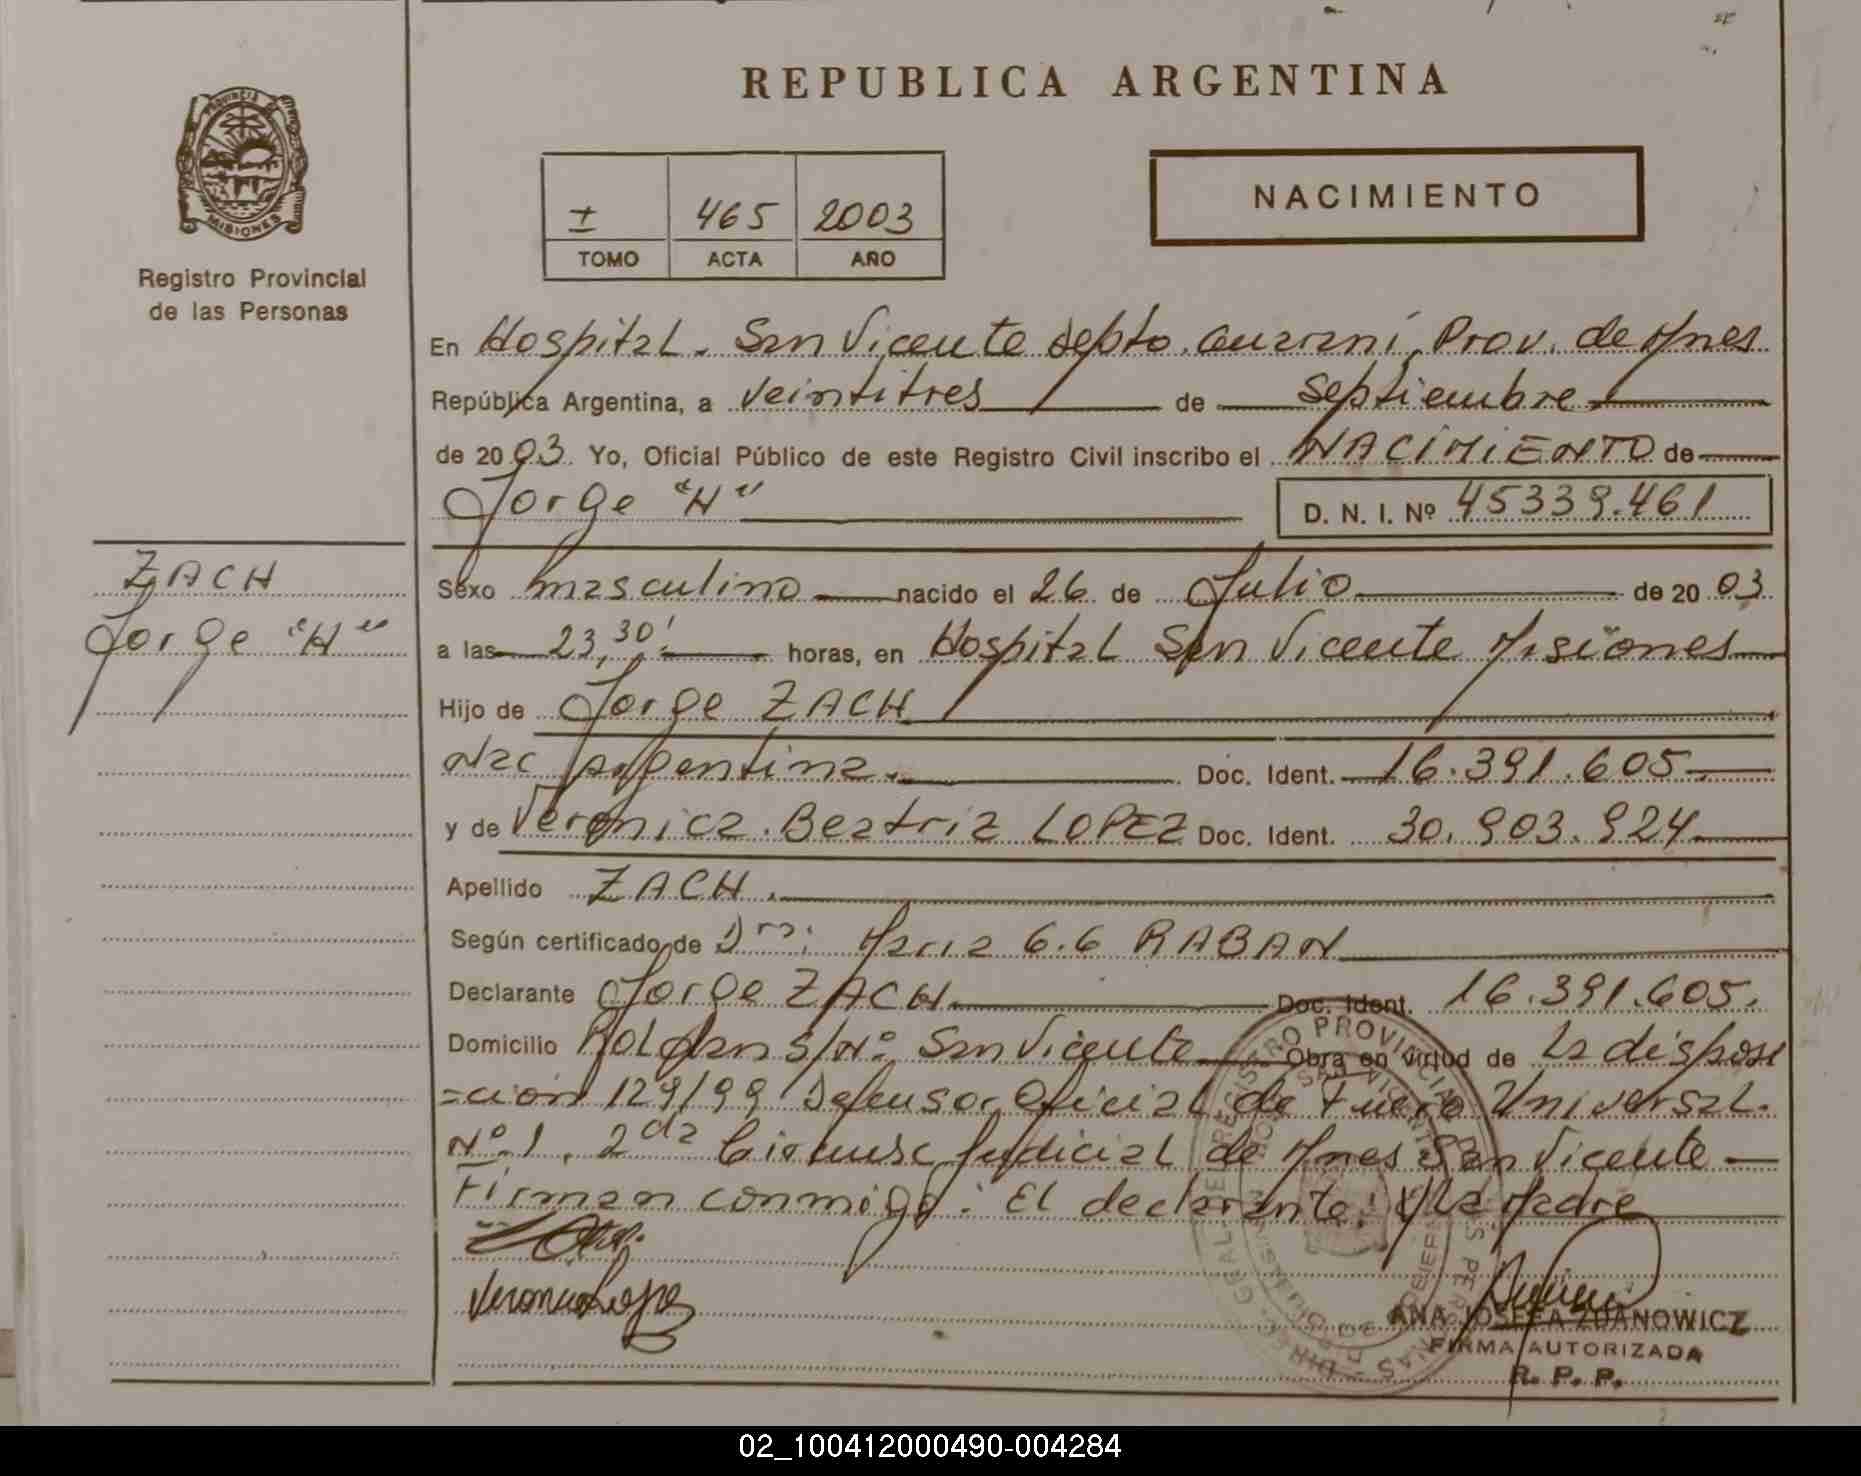 PROVINCIA DE
MISIONES
Registro Provincial
de las Personas
ZACH
Jorge "H"
REPUBLICA ARGENTINA
I 465 2003
TOMO ACTA AÑO
NACIMIENTO
En Hospital. San Vicente depto. Guaraní, Prov. de Mnes
República Argentina, a veintitres de Septiembre
de 2003. Yo, Oficial Público de este Registro Civil inscribo el NACIMIENTO de
Jorge "H"
D. N. I. Nº 45339.461
Sexo masculino nacido el 26 de Julio de 2003
a las 23,30' horas, en Hospital San Vicente Misiones
Hijo de Jorge ZACH
Nac Argentina. Doc. Ident. 16.391.605
y de Veronica Beatriz LOPEZ Doc. Ident. 30.903.924
Apellido ZACH.
Según certificado de Dra: Maria G.G RABAN
Declarante Jorge ZACH Doc. Ident. 16.391.605.
Domicilio Roldan S/Nº San Vicente Obra en virtud de la disposi
=ción 129/99 Defensor Oficial de Fuero Universal.
Nº 1. 2da Circunsc Judicial de Mnes San Vicente
Firman conmigo: El declarante: y la Madre
Veronica Lopez
ANA JOSEFA ZDANOWICZ
FIRMA AUTORIZADA
R. P. P.
02_100412000490-004284